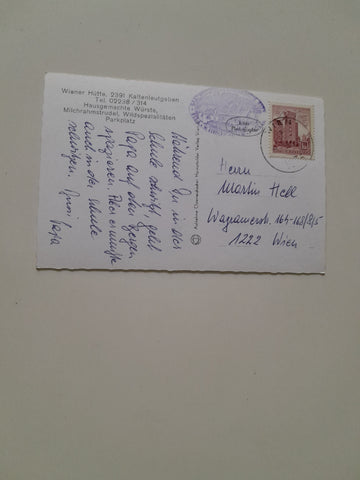 Wiener Hütte, 2391 Kaltenleutgeben
Tel. 02238 / 314
Hausgemachte Würste,
Milchrahmstrudel, Wildspezialitäten
Parkplatz
Während Du in der
Schule schwitzt, geht
Papa auf den Bergen
spazieren. Aber er mußte
auch in der Schule
schwitzen. Bussi
Papa
Herrn
Martin Hell
Wagramerstr. 164-168/8/5
1222 Wien